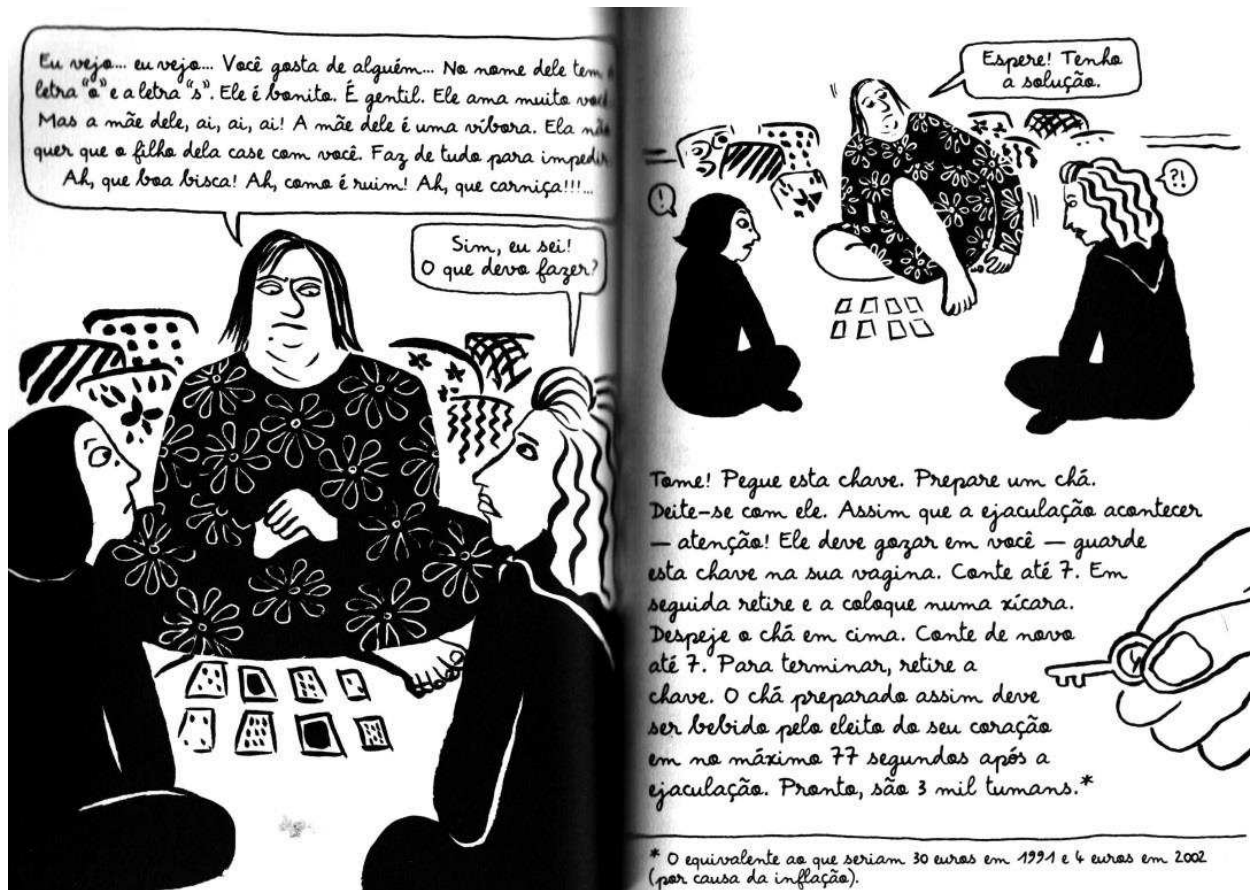 Eu vejo... eu vejo... Você gosta de alguém... No nome dele tem a
letra "o" e a letra "s". Ele é bonito. É gentil. Ele ama muito você.
Mas a mãe dele, ai, ai, ai! A mãe dele é uma víbora. Ela não
quer que o filho dela case com você. Faz de tudo para impedir.
Ah, que boa bisca! Ah, como é ruim! Ah, que carniça!!!...
Sim, eu sei!
O que devo fazer?
Espere! Tenho
a solução.
!
?!
Tome! Pegue esta chave. Prepare um chá.
Deite-se com ele. Assim que a ejaculação acontecer
— atenção! Ele deve gozar em você — guarde
esta chave na sua vagina. Conte até 7. Em
seguida retire e a coloque numa xícara.
Despeje o chá em cima. Conte de novo
até 7. Para terminar, retire a
chave. O chá preparado assim deve
ser bebido pelo eleito do seu coração
em no máximo 77 segundos após a
ejaculação. Pronto, são 3 mil tumans.*
* O equivalente ao que seriam 30 euros em 1991 e 4 euros em 2002
(por causa da inflação).